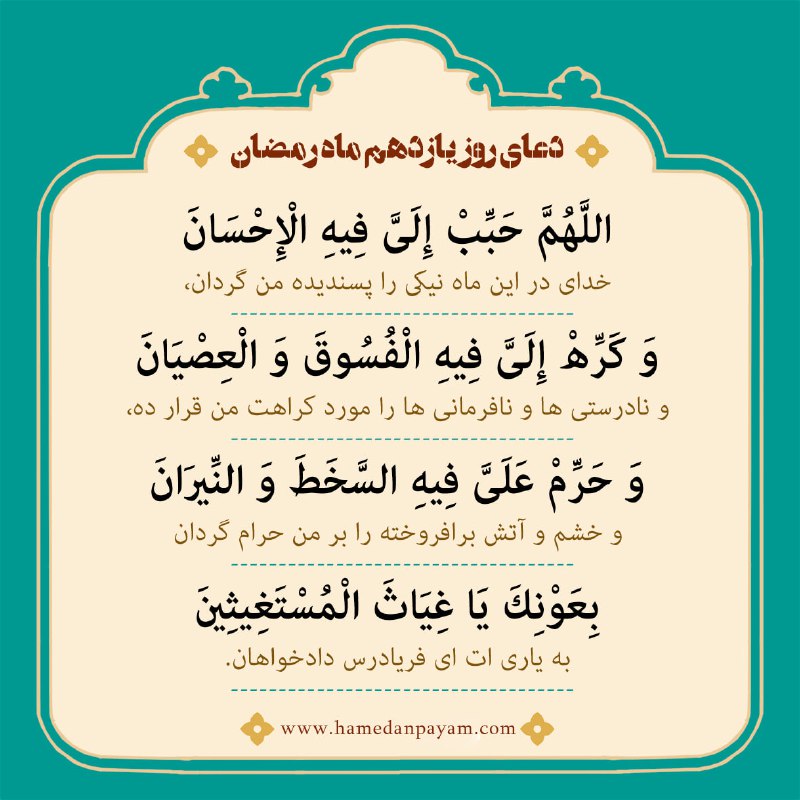 دعای روز یازدهم ماه رمضان
اللَّهُمَّ حَبِّبْ إِلَیَّ فِیهِ الْإِحْسَانَ
خدای در این ماه نیکی را پسندیده من گردان،
وَ کَرِّهْ إِلَیَّ فِیهِ الْفُسُوقَ وَ الْعِصْیَانَ
و نادرستی ها و نافرمانی ها را مورد کراهت من قرار ده،
وَ حَرِّمْ عَلَیَّ فِیهِ السَّخَطَ وَ النِّیرَانَ
و خشم و آتش برافروخته را بر من حرام گردان
بِعَوْنِکَ یَا غِیَاثَ الْمُسْتَغِیثِینَ
به یاری ات ای فریادرس دادخواهان.
www.hamedanpayam.com